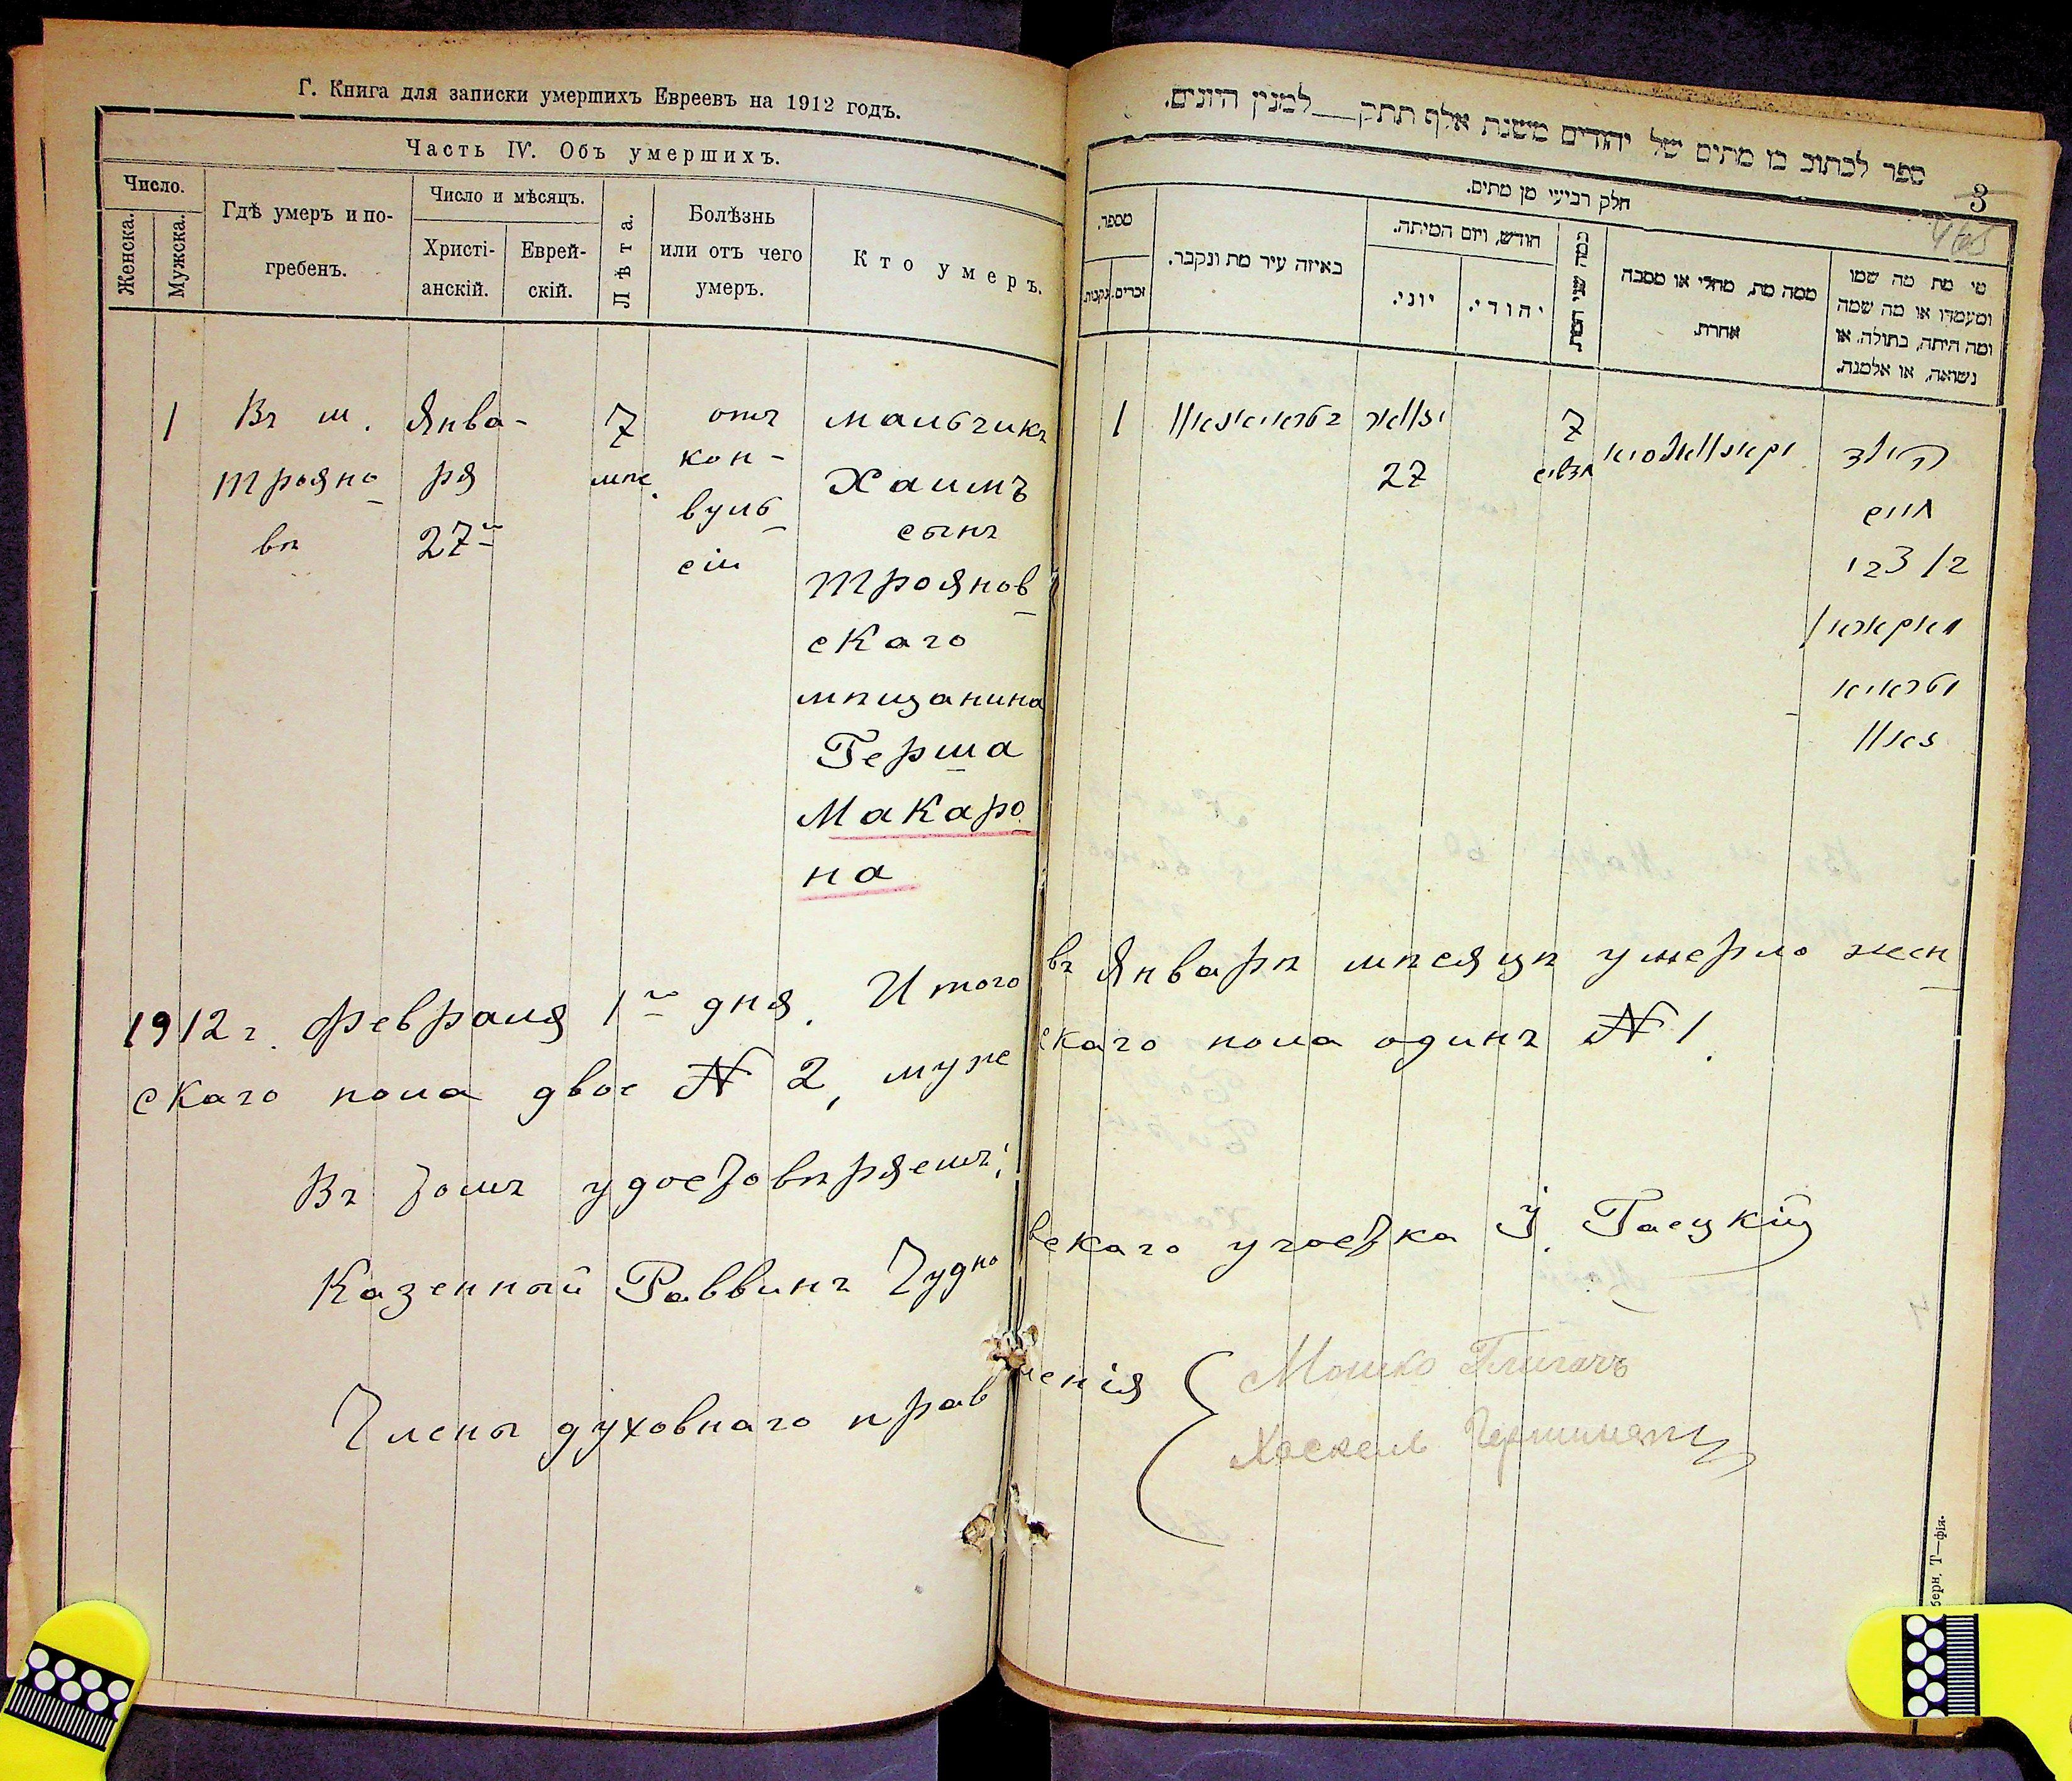 Г. Книга для записки умершихъ Евреевъ на 1912 годъ.
Часть IV. Объ умершихъ.
Число.
Женска.
Мужска.
Гдѣ умеръ и по-
гребенъ.
Число и мѣсяцъ.
Христі-
анскій.
Еврей-
скій.
Лѣта.
Болѣзнь
или отъ чего
умеръ.
Кто умеръ.
1
Въ м.
Трояно
вѣ
Янва-
ря
27го
7
мѣс.
отъ
кон-
вуль
сіи
мальчикъ
Хаимъ
сынъ
Троянов
скаго
мѣщанина
Герша
Макаро
на
ספר לכתוב בו מתים של יהודים משנת אלף תתק__למנין היונים.
3
חלק רביעי מן מתים.
מספר.
נקבות.
זכרים.
באיזה עיר מת ונקבר.
חודש, ויום המיתה.
יוני.
יהודי.
כמה שני המת
ממה מת, מחלי או מסבה
אחרת.
מי מת מה שמו
ומעמדו או מה שמה
ומה היתה, בתולה, או
נשואה, או אלמנה.
1
בטראיאנאוו
יאנוואר
27
7
חדשים
הילד
חיים
בן צבי
מאקאראן
מטראיא
נאוו
1912 г. Февраля 1го дня. Итого въ Январѣ мѣсяцѣ умерло жен
скаго пола двое № 2, мужескаго пола одинъ № 1.
Въ томъ удостовѣряемъ:
Казенный Раввинъ Чудновскаго участка І. Гаецкій
Члены духовнаго правленія
Мошко
Хаскель
берн. Т—фія.